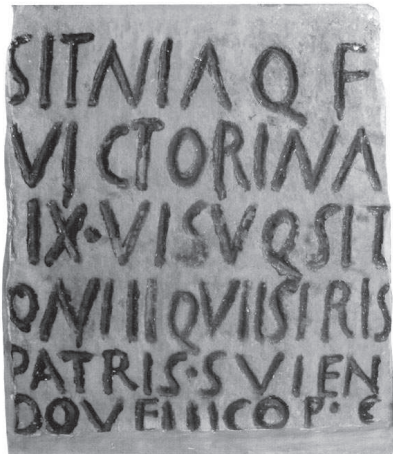 SITNIA Q F
VICTORINA
IIX·VISVQ·SIT
ONIIIQVIISIRIS
PATRIS·SVIEN
DOVEIIICOP·C